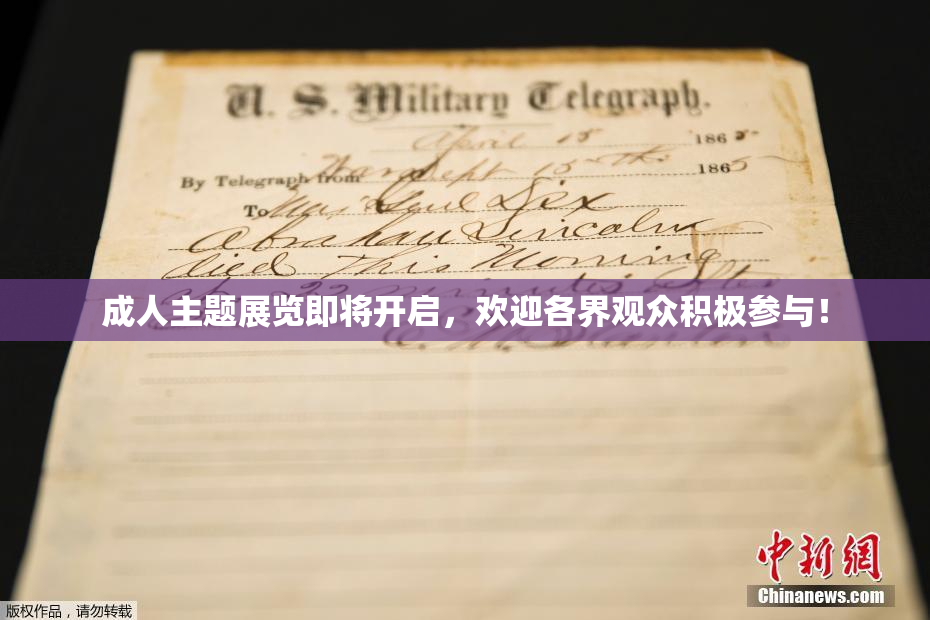 U. S. Military Telegraph.
April 15 1865
By Telegraph from War Dept 15th 1865
To Maj Genl Dix
Abraham Lincoln
died This Morning
22 minutes after
成人主题展览即将开启，欢迎各界观众积极参与！
中新網
Chinanews.com
版权作品，请勿转载